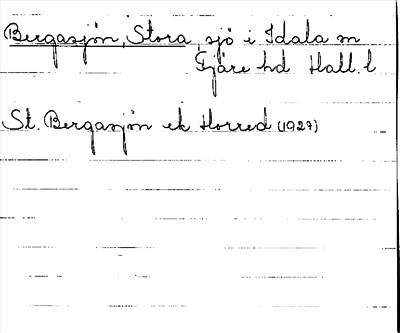 Bergasjön, Stora, sjö i Idala sn
Fjäre hd Hall. l
St. Bergasjön ek Horred (1927)